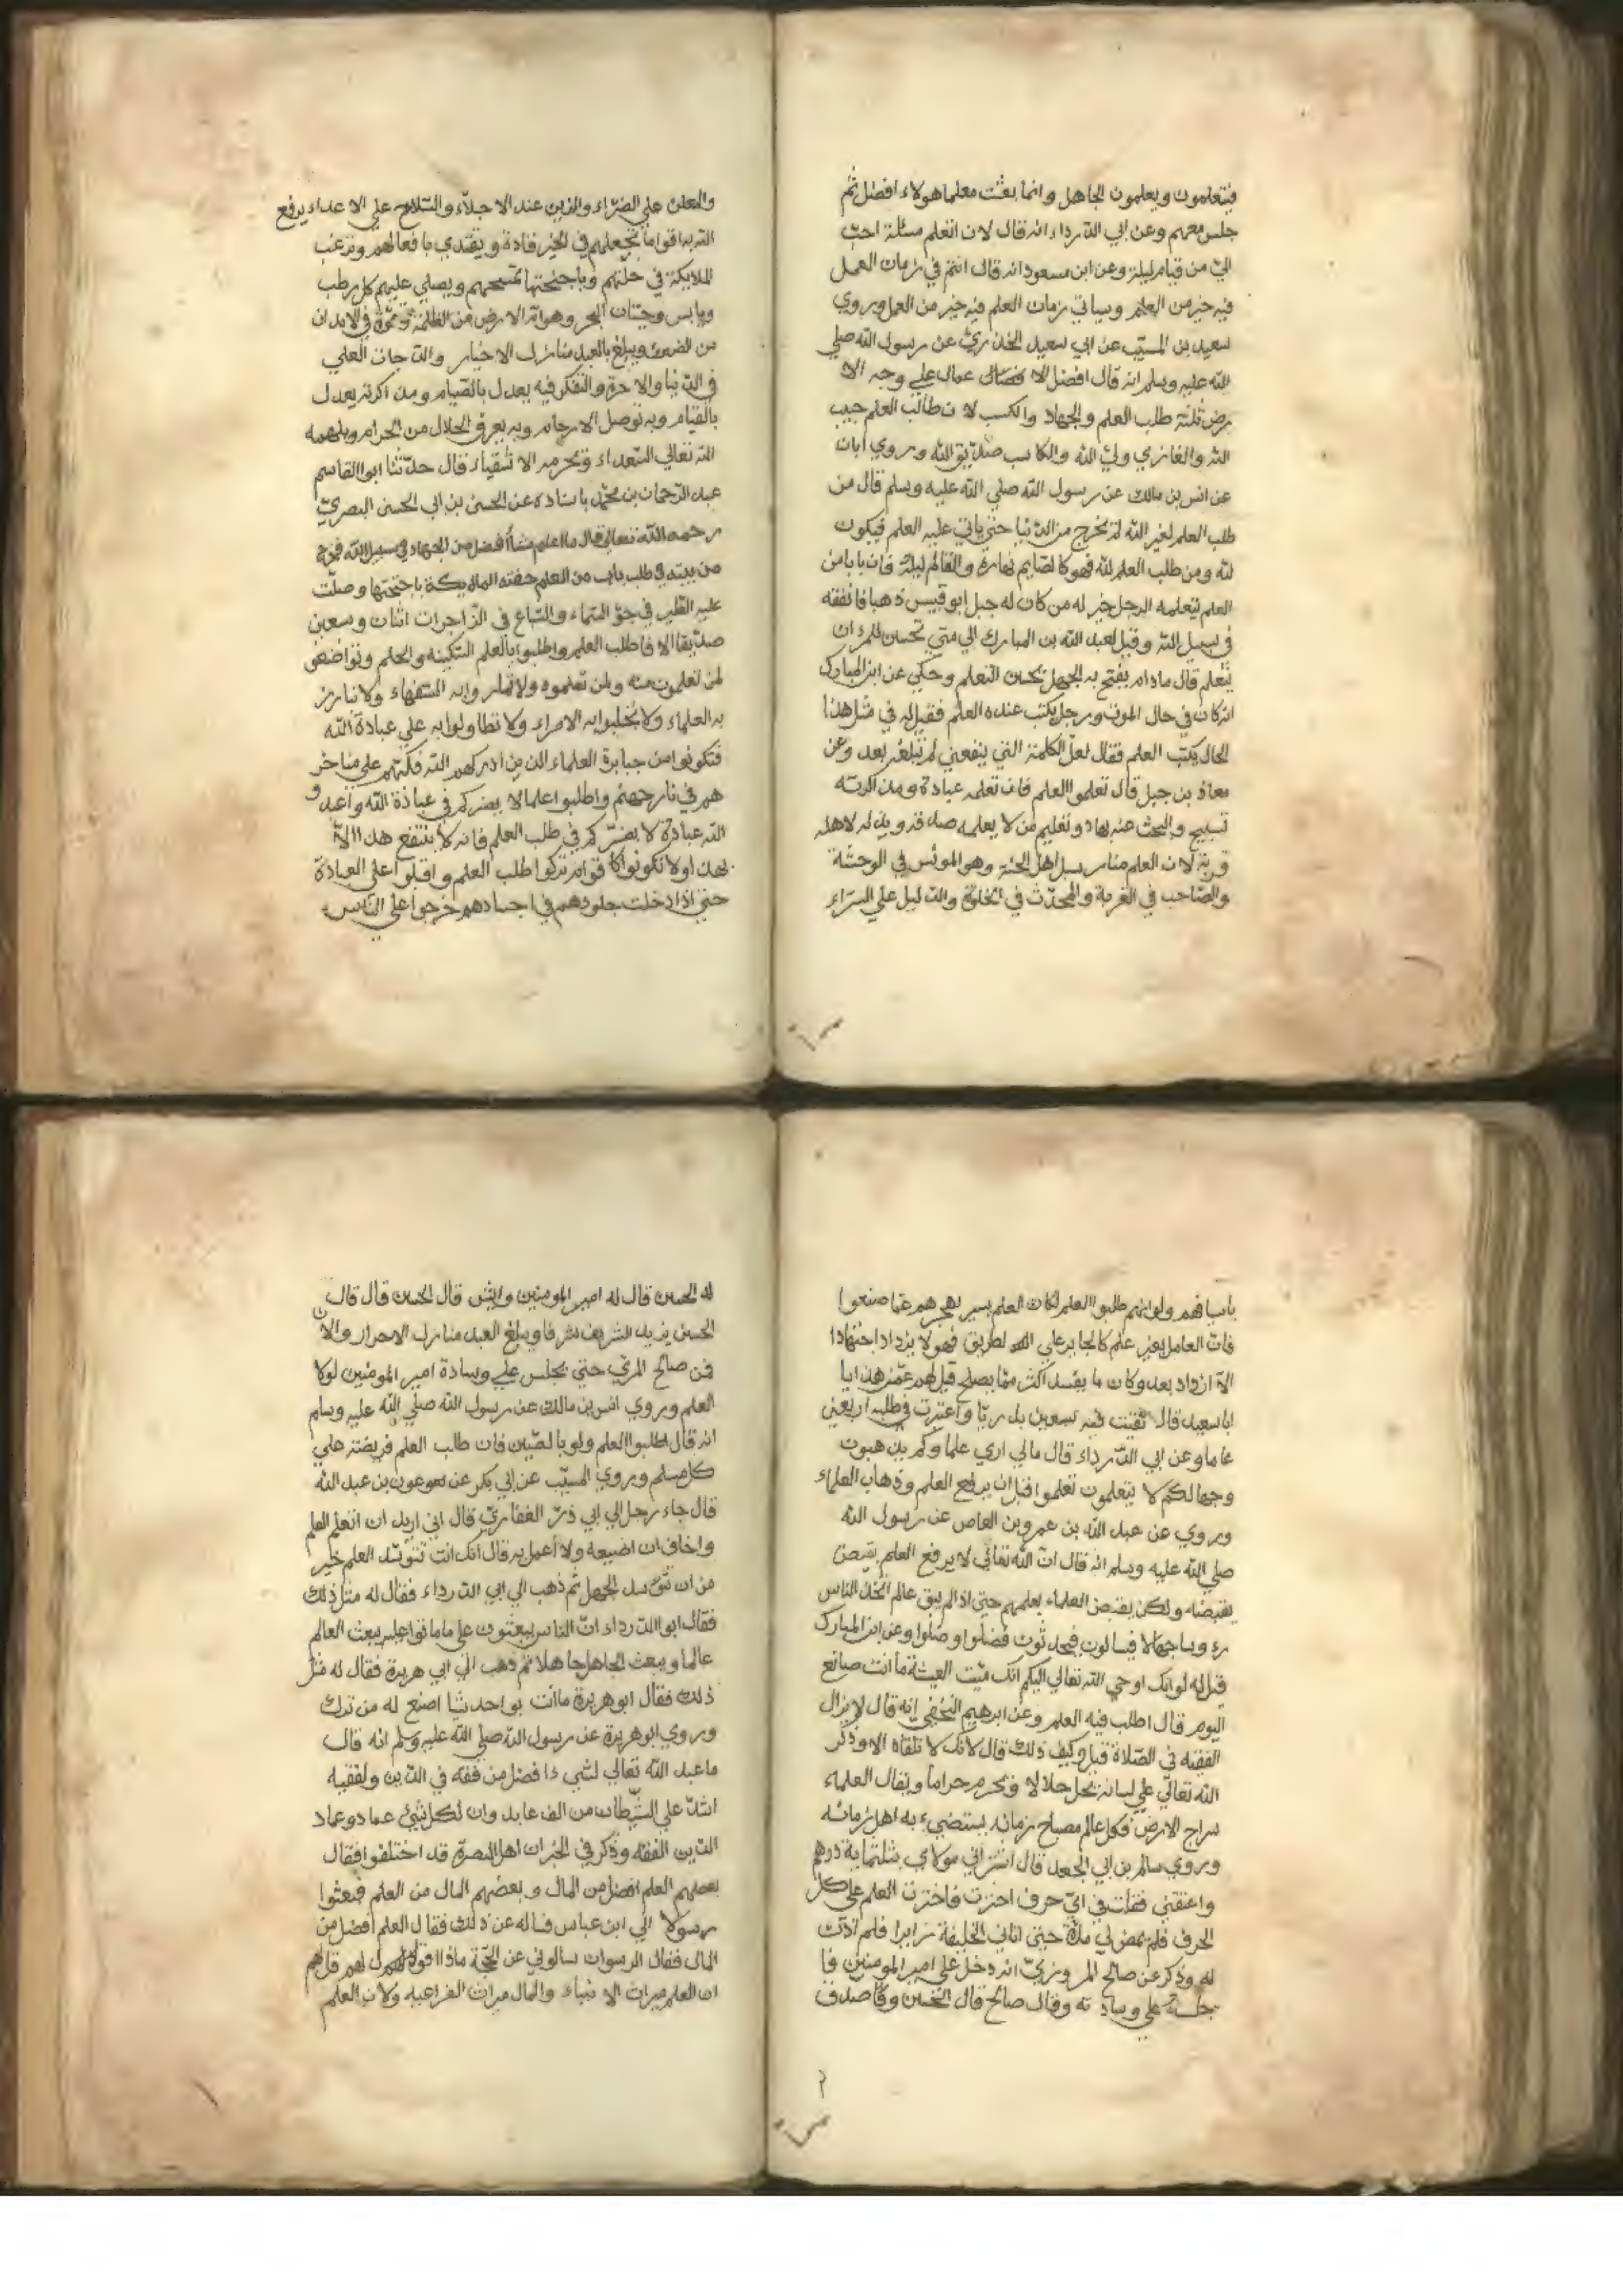 فيتعلمون ويعلمون الجاهل وانما بعثت معلما هولاء افضل ثم
جلس معهم وعن ابي الدرداء انه قال لان اتعلم مسئلة احب
الي من قيام ليلة وعن ابن مسعود انه قال انتم في زمان العمل
فيه خير من العلم وسياتي زمان العلم فيه خير من العمل وروي
سعيد بن المسيب عن ابي سعيد الخدري عن رسول الله صلي
الله عليه وسلم انه قال افضل الا عمال علي وجه الا
رض ثلثة طلب العلم والجهاد والكسب لان طالب العلم حبيب
الله والغازي ولي الله والكاسب صديق الله وروي ابان
عن انس بن مالك عن رسول الله صلي الله عليه وسلم قال من
طلب العلم لغير الله لم يخرج من الدنيا حتي ياتي عليه العلم فيكون
لله ومن طلب العلم لله فهو كالصايم نهاره والقائم ليله فان بابا من
العلم يتعلمه الرجل خير له من كان له جبل ابو قبيس ذهبا فانفقه
في سبيل الله وقيل لعبد الله بن المبارك الي متي تحسن للمرء ان
يتعلم قال مادام يقبح به الجهل يحسن التعلم وحكي عن ابن المبارك
انه كان في حال الموت ورجل يكتب عنده العلم فقيل له في مثل هذا
الحال يكتب العلم فقال لعل الكلمة التي ينفعني لم تبلغني بعد وعن
معاذ بن جبل قال تعلموا العلم فان تعلمه عبادة ومذاكرته
تسبيح والبحث عنه جهاد وتعليم من لا يعلمه صدقة وبذله لاهله
قربة لان العلم منار سبل اهل الجنة وهو المونس في الوحشة
والصاحب في الغربة والمحدث في الخلوة والدليل علي السراء
والمعلن علي الضراء والزين عند الاجلاء والسلاح علي الاعداء يرفع
الله به اقواما فيجعلهم في الخير قادة ويقتدي بافعالهم وترغب
الملايكة في خلتهم وباجنحتها تمسحهم ويصلي عليهم كل رطب
ويابس وحيتان البحر وهوام الارض من الظلمة وقوة في الابدان
من الضعف ويبلغ بالعبد منازل الاخيار والدرجات العلي
في الدنيا والاخرة والتفكر فيه يعدل بالصيام ومذاكرته يعدل
بالقيام وبه توصل الارحام وبه يعرف الحلال من الحرام ويلهمه
الله تعالي السعداء ويحرمه الاشقياء قال حدثنا ابوا القاسم
عبد الرحمان بن محمد باسناده عن الحسن بن ابي الحسن البصري
رحمه الله تعالي قال ما اعلم شيأ افضل من الجهاد في سبيل الله فخرج
من بيته في طلب باب من العلم حفته الملايكة باجنحتها وصلت
عليه الطير في جو السماء والسباع في اثنان وسبعين
صديقا الا فاطلب العلم واطلبوا بالعلم السكينة والحلم وتواضعو
لمن تعلمون منه ولمن تعلموه ولا تمار وابه السفهاء ولا
به العلماء ولا تختلبوا به الامراء ولا تطاولوا به علي عبادة الله
فتكونوا من جبابرة العلماء الذين ادركهم الله فكبهم علي مناخر
هم في نار جهنم واطلبوا علما لا يضركم في عبادة الله واعبدو
الله عبادة لا يضركم في طلب العلم فانه لا ينتفع هذا الا
بهذا ولا تكونوا كاقوام تركوا طلب العلم واقبلوا علي العبادة
حتي اذا دخلت جلودهم في اجسادهم خرجوا علي الناس
باسيافهم ولو انهم طلبوا العلم لكان العلم يسير بحجرهم عما صنعوا
فان العامل بغير علم كالجاير علي الطريق فهو لا يزداد اجتهادا
الا ازداد بعدا وكان ما يفسد اكثر مما يصلح قيل لهم عمن هذا يا
ابا سعيد قال لقيت فيه سبعين بدريا واغتربت في طلبه اربعين
عاما وعن ابي الدرداء قال مالي اري علماوكم يذهبون
وجهالكم لا يتعلمون تعلموا قبل ان يرفع العلم وذهاب العلماء
وروي عن عبد الله بن عمرو بن العاص عن رسول الله
صلي الله عليه وسلم انه قال ان الله تعالي لا يرفع العلم بقبض
يقبضه ولكن يقبض العلماء يعلمهم حتي اذا لم يبق عالم اتخذ الناس
رءوسا جهالا فيسالون فيحدثون فضلوا وضلوا وعن ابن المبارك
قيل له لو انك اوحي الله تعالي اليكم انك ميت العيشة ما انت صانع
اليوم قال اطلب فيه العلم وعن ابرهيم النخعي انه قال لا يزال
الفقيه في الصلاة قيل وكيف ذلك قال لانك لا تلقاه الا وذكر
الله تعالي علي لسانه يحل حلالا ويحرم حراما ويقال العلماء
سراج الارض فكل عالم مصباح زمانه يستضيء به اهل زمانه
وروي سالم بن ابي الجعد قال اشتراني مولاي بثلثماية درهم
واعتقني فقلت في اي حرف احترت فاخترت العلم علي كل
الحرف فلم يمض لي مدة حتي اتاني الخليفة زايرا فلم اذن
له وذكر عن صالح المروزي انه دخل علي امير المومنين فا
جلسه علي وسادته وقال صالح قال الحسن وصدق
له الحسن قال له امير المومنين وايش قال الحسن قال قال
الحسن يزيد الشريف شرفا ويبلغ العبد منازل الاحرار والا
فمن صالح المري حتي يجلس علي وسادة امير المومنين لولا
العلم وروي انس بن مالك عن رسول الله صلي الله عليه وسلم
انه قال اطلبوا العلم ولو بالصين فان طلب العلم فريضة علي
كل مسلم وروي المسيب عن ابي بكر عن عون بن عبد الله
قال جاء رجل الي ابي ذر الغفاري قال اني اريد ان اتعلم العلم
واخاف ان اضيعه ولا اعمل به قال انك انت تتوسد العلم خير
من ان تتوسد الجهل ثم ذهب الي ابي الدرداء فقال له مثل ذلك
فقال ابوا الدرداء ان الناس يبعثون علي ما ماتوا عليه يبعث العالم
عالما ويبعث الجاهل جاهلا ثم ذهب الي ابي هريرة فقال له مثل
ذلك فقال ابو هريرة ما انت بواحد شيا اضيع له من ترك
وروي ابو هريرة عن رسول الله صلي الله عليه وسلم انه قال
ما عبد الله تعالي لشي ذا فضل من فقه في الدين ولفقيه
اشد علي الشيطان من الف عابد وان لكل شيئ عماد وعماد
الدين الفقه وذكر في الخبر ان اهل البصرة قد اختلفوا فقال
بعضهم العلم افضل من المال وبعضهم المال من العلم فبعثوا
رسولا الي ابن عباس فساله عن ذلك فقال العلم افضل من
المال فقال الرسول ان سالوني عن الحجة ماذا اقول لهم قل لهم
ان العلم ميراث الانبياء والمال ميراث الفراعنة ولان العلم